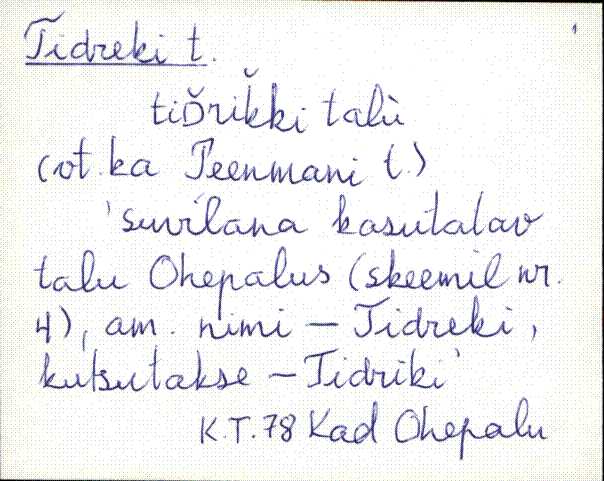 Tidreki t.
tiD̆rik̆ki talù
(vt. ka Peenmani t.)
'suvilana kasutatav
talu Ohepalus (skeemil nr.
4), am. nimi – Tidreki,
kutsutakse – Tidriki'
K.T. 78 Kad Ohepalu